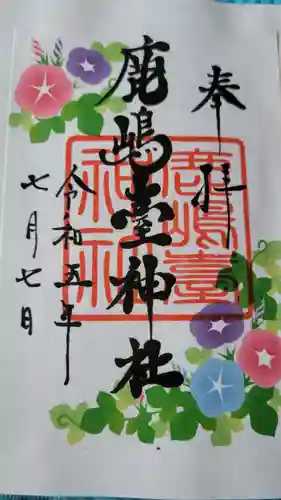 奉拝
鹿嶋臺神社
令和五年
七月七日
鹿嶋臺
神社